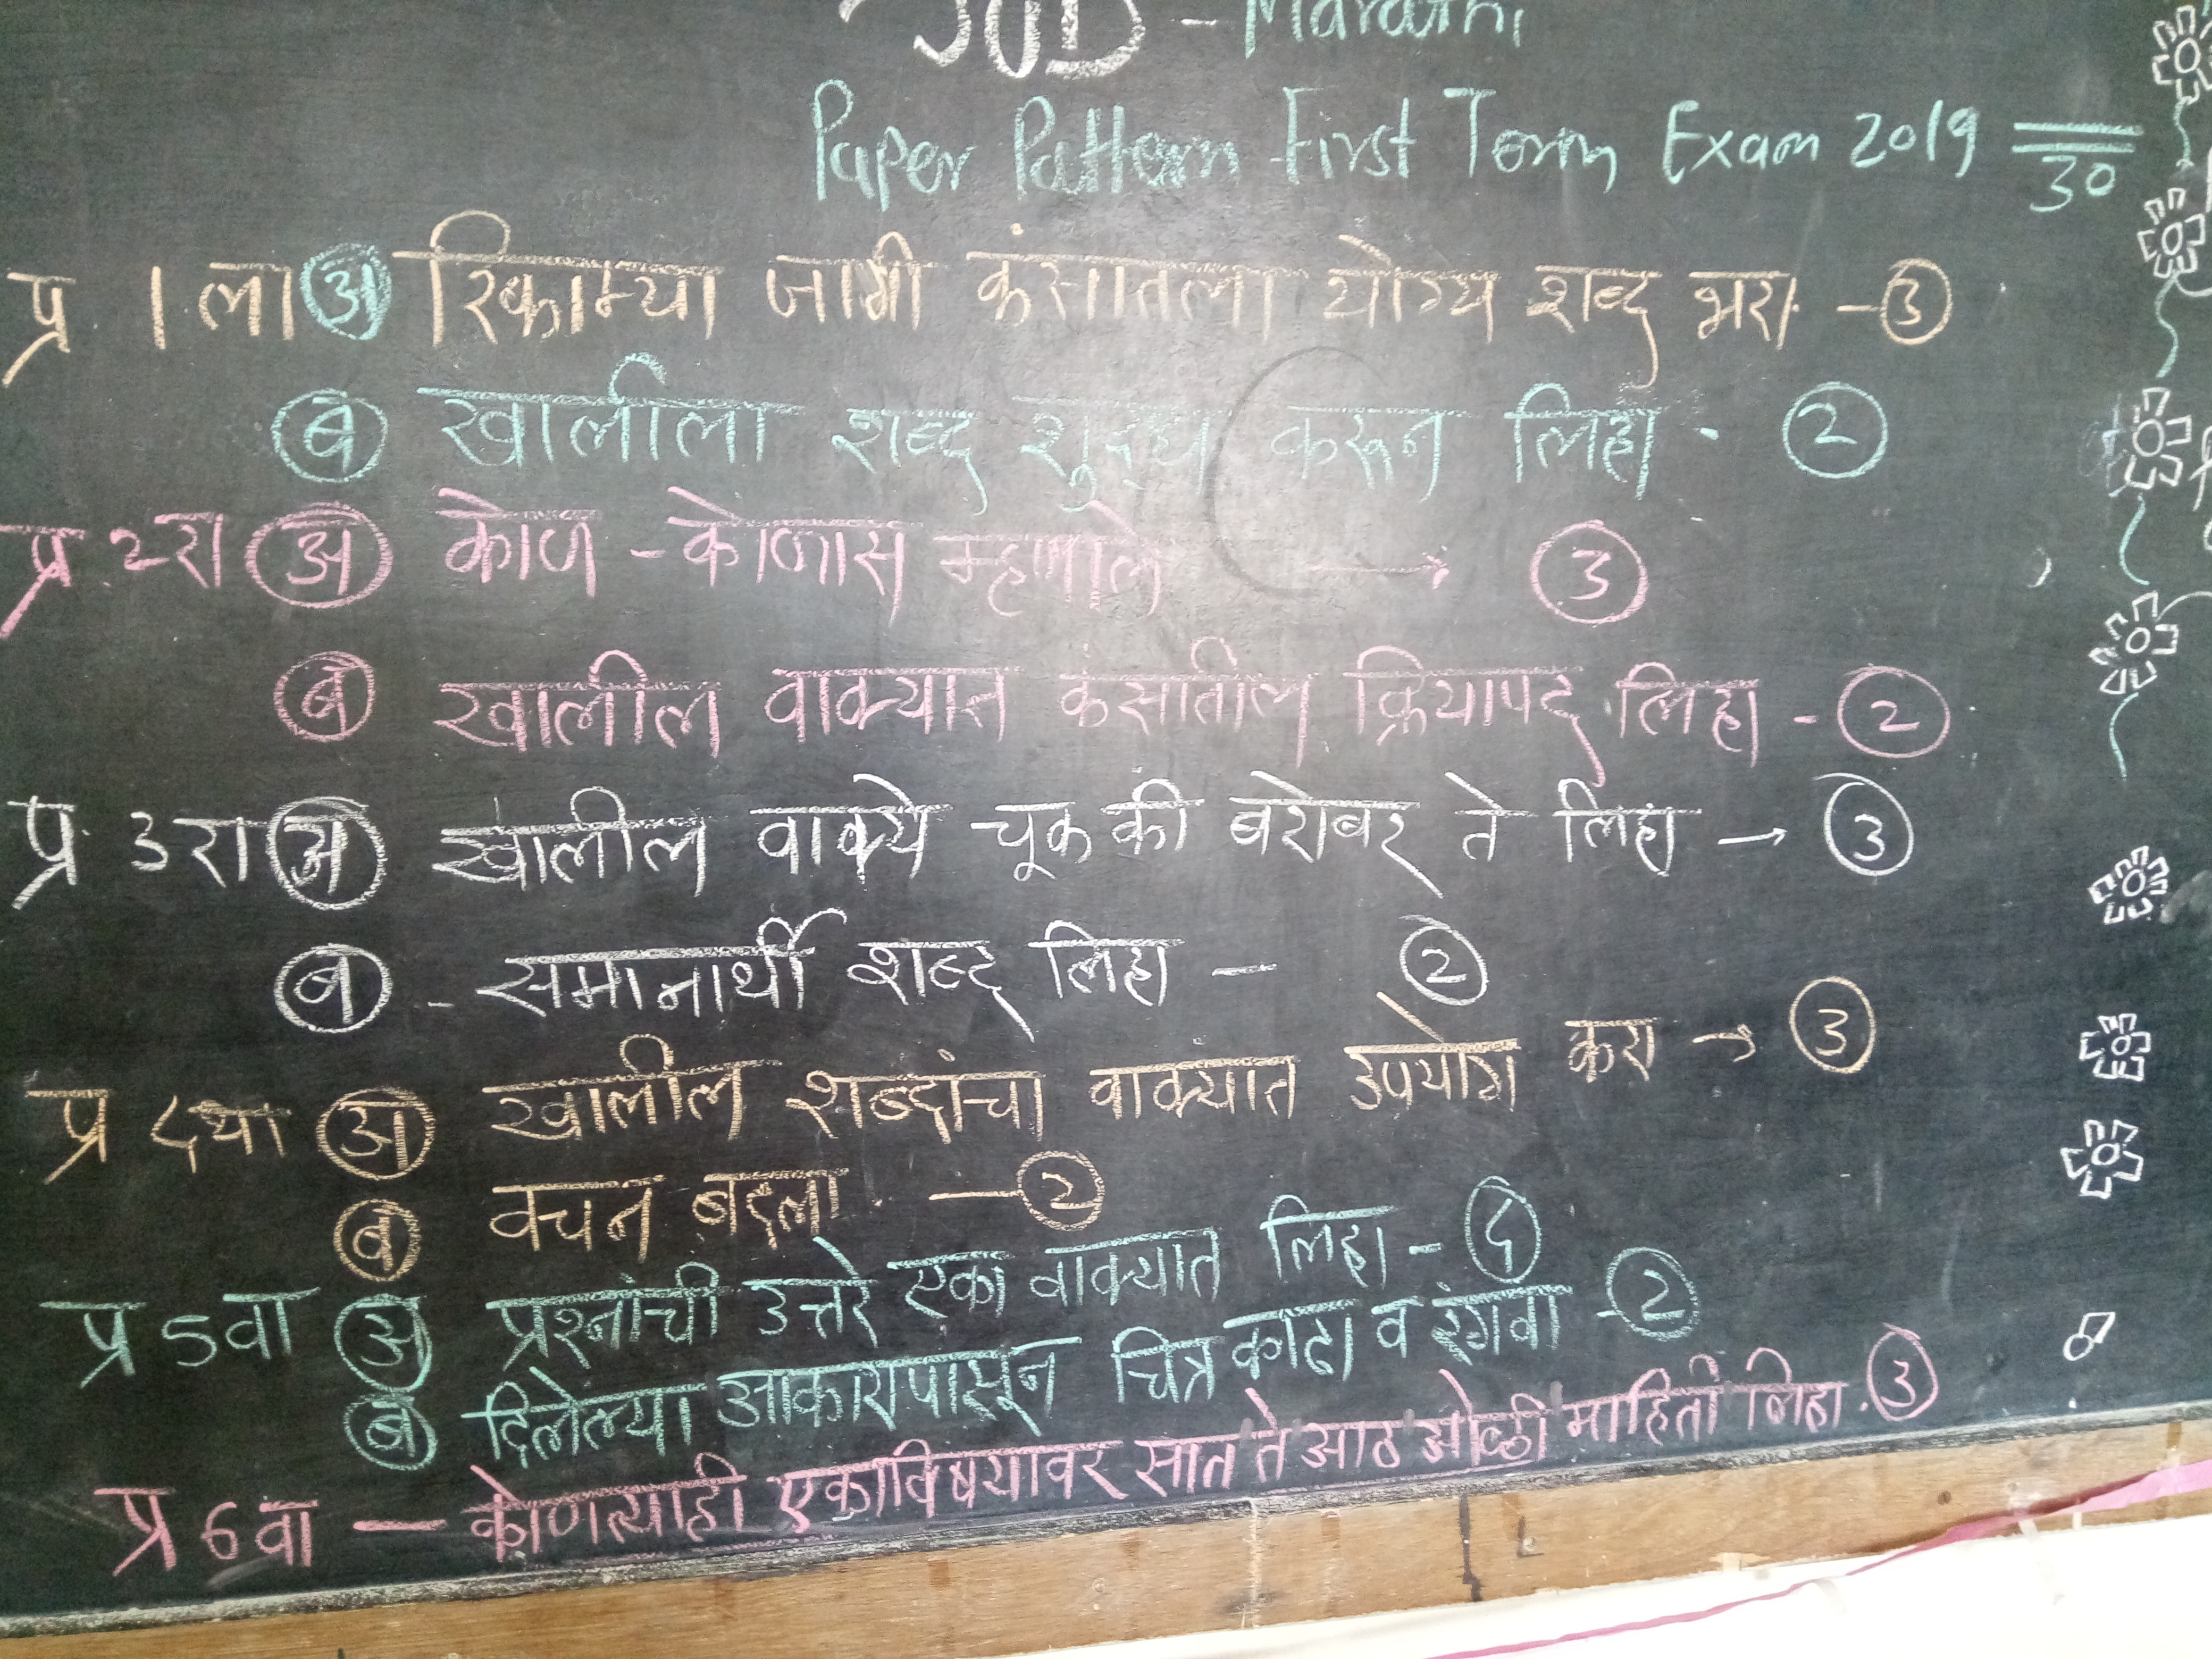 SUD - Marathi
Paper Pattern First Term Exam 2019 30
प्र 1 ला अ रिकाम्या जागी कंसातला योग्य शब्द भरा - 3
ब खालीला शब्द शुद्ध करून लिहा. 2
प्र. २रा अ कोण - कोणास म्हणाले → 3
ब खालील वाक्यात कंसातील क्रियापद लिहा - 2
प्र. 3 रा अ खालील वाक्ये चूक की बरोबर ते लिहा → 3
ब - समानार्थी शब्द लिहा - 2
प्र ८था अ खालील शब्दांचा वाक्यात उपयोग करा → 3
ब वचन बदला. - 2
प्र 5वा अ प्रश्नांची उत्तरे एका वाक्यात लिहा - 5
ब दिलेल्या आकारापासून चित्र काढा व रंगवा - 2
प्र 6 वा - कोणत्याही एकाविषयावर सात ते आठ ओळी माहिती लिहा. 3